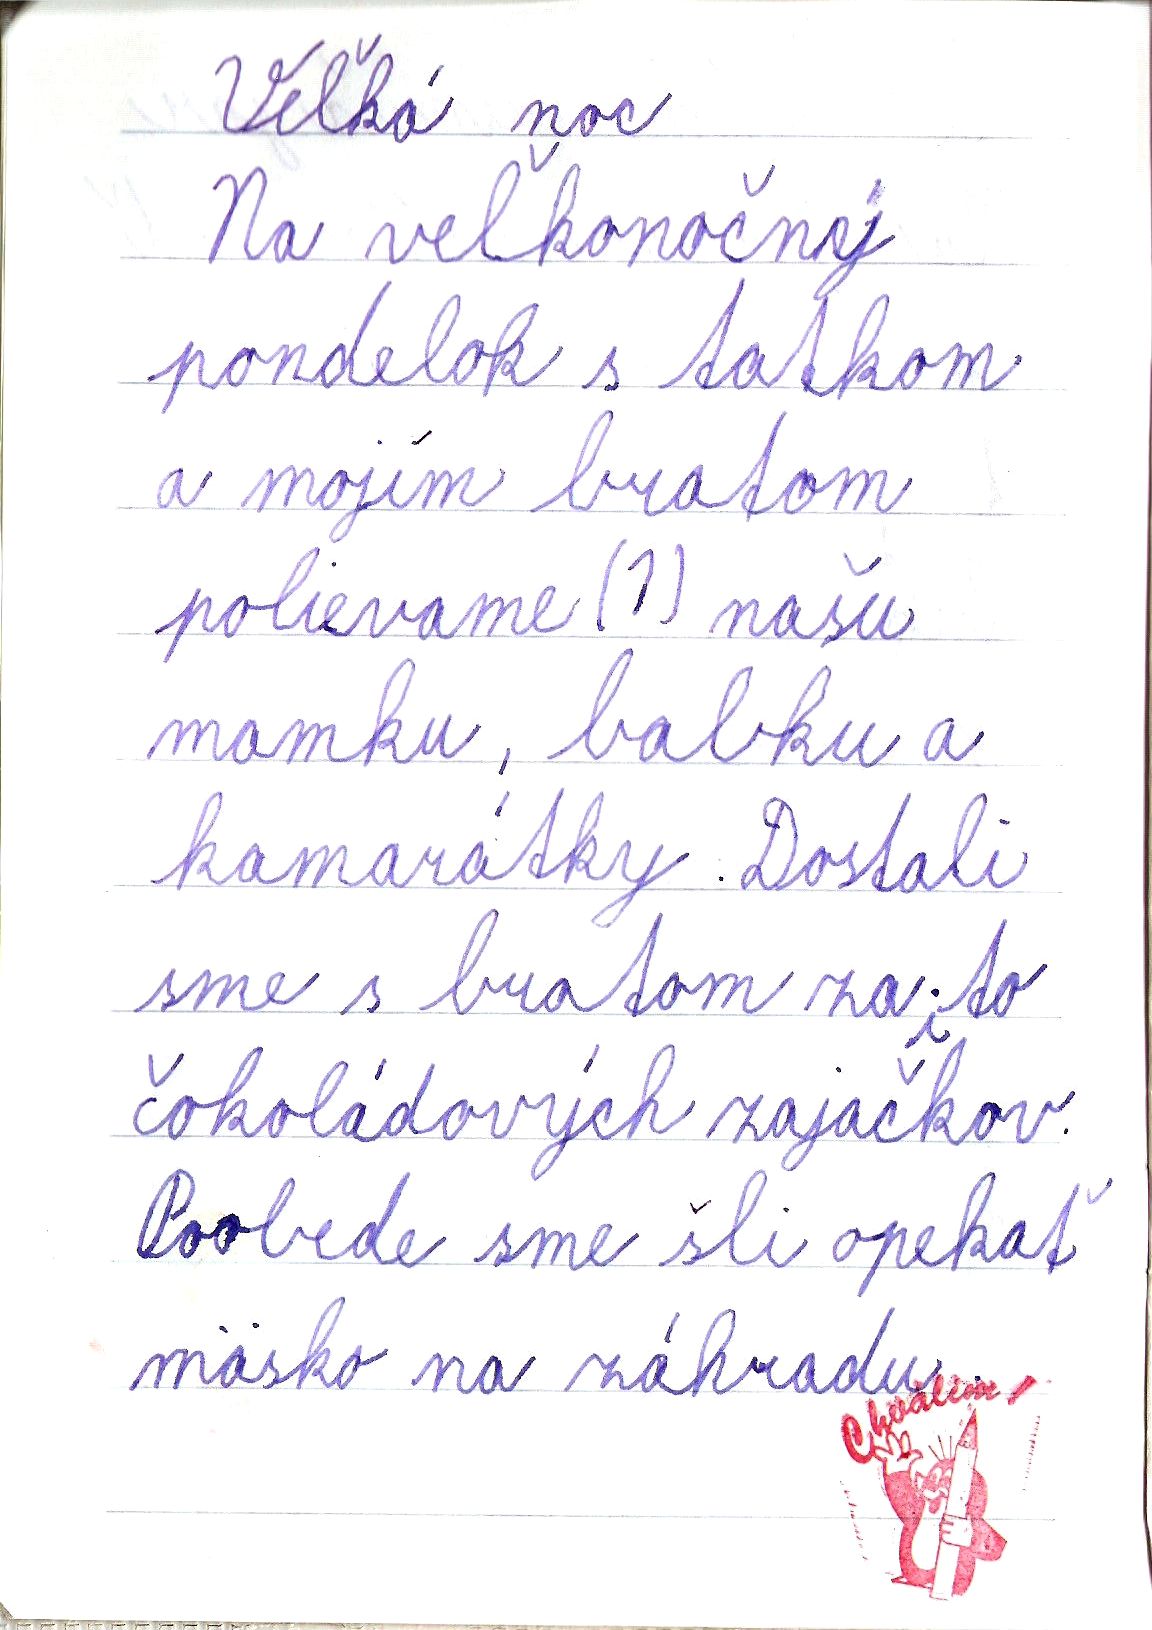 Veľká noc
Na veľkonočný
pondelok s tatkom
a mojím bratom
polievame (1) našu
mamku, babku a
kamarátky. Dostali
sme s bratom za i to
čokoládových zajačkov.
Poobede sme šli opekať
mäsko na záhradu.
Chválim!